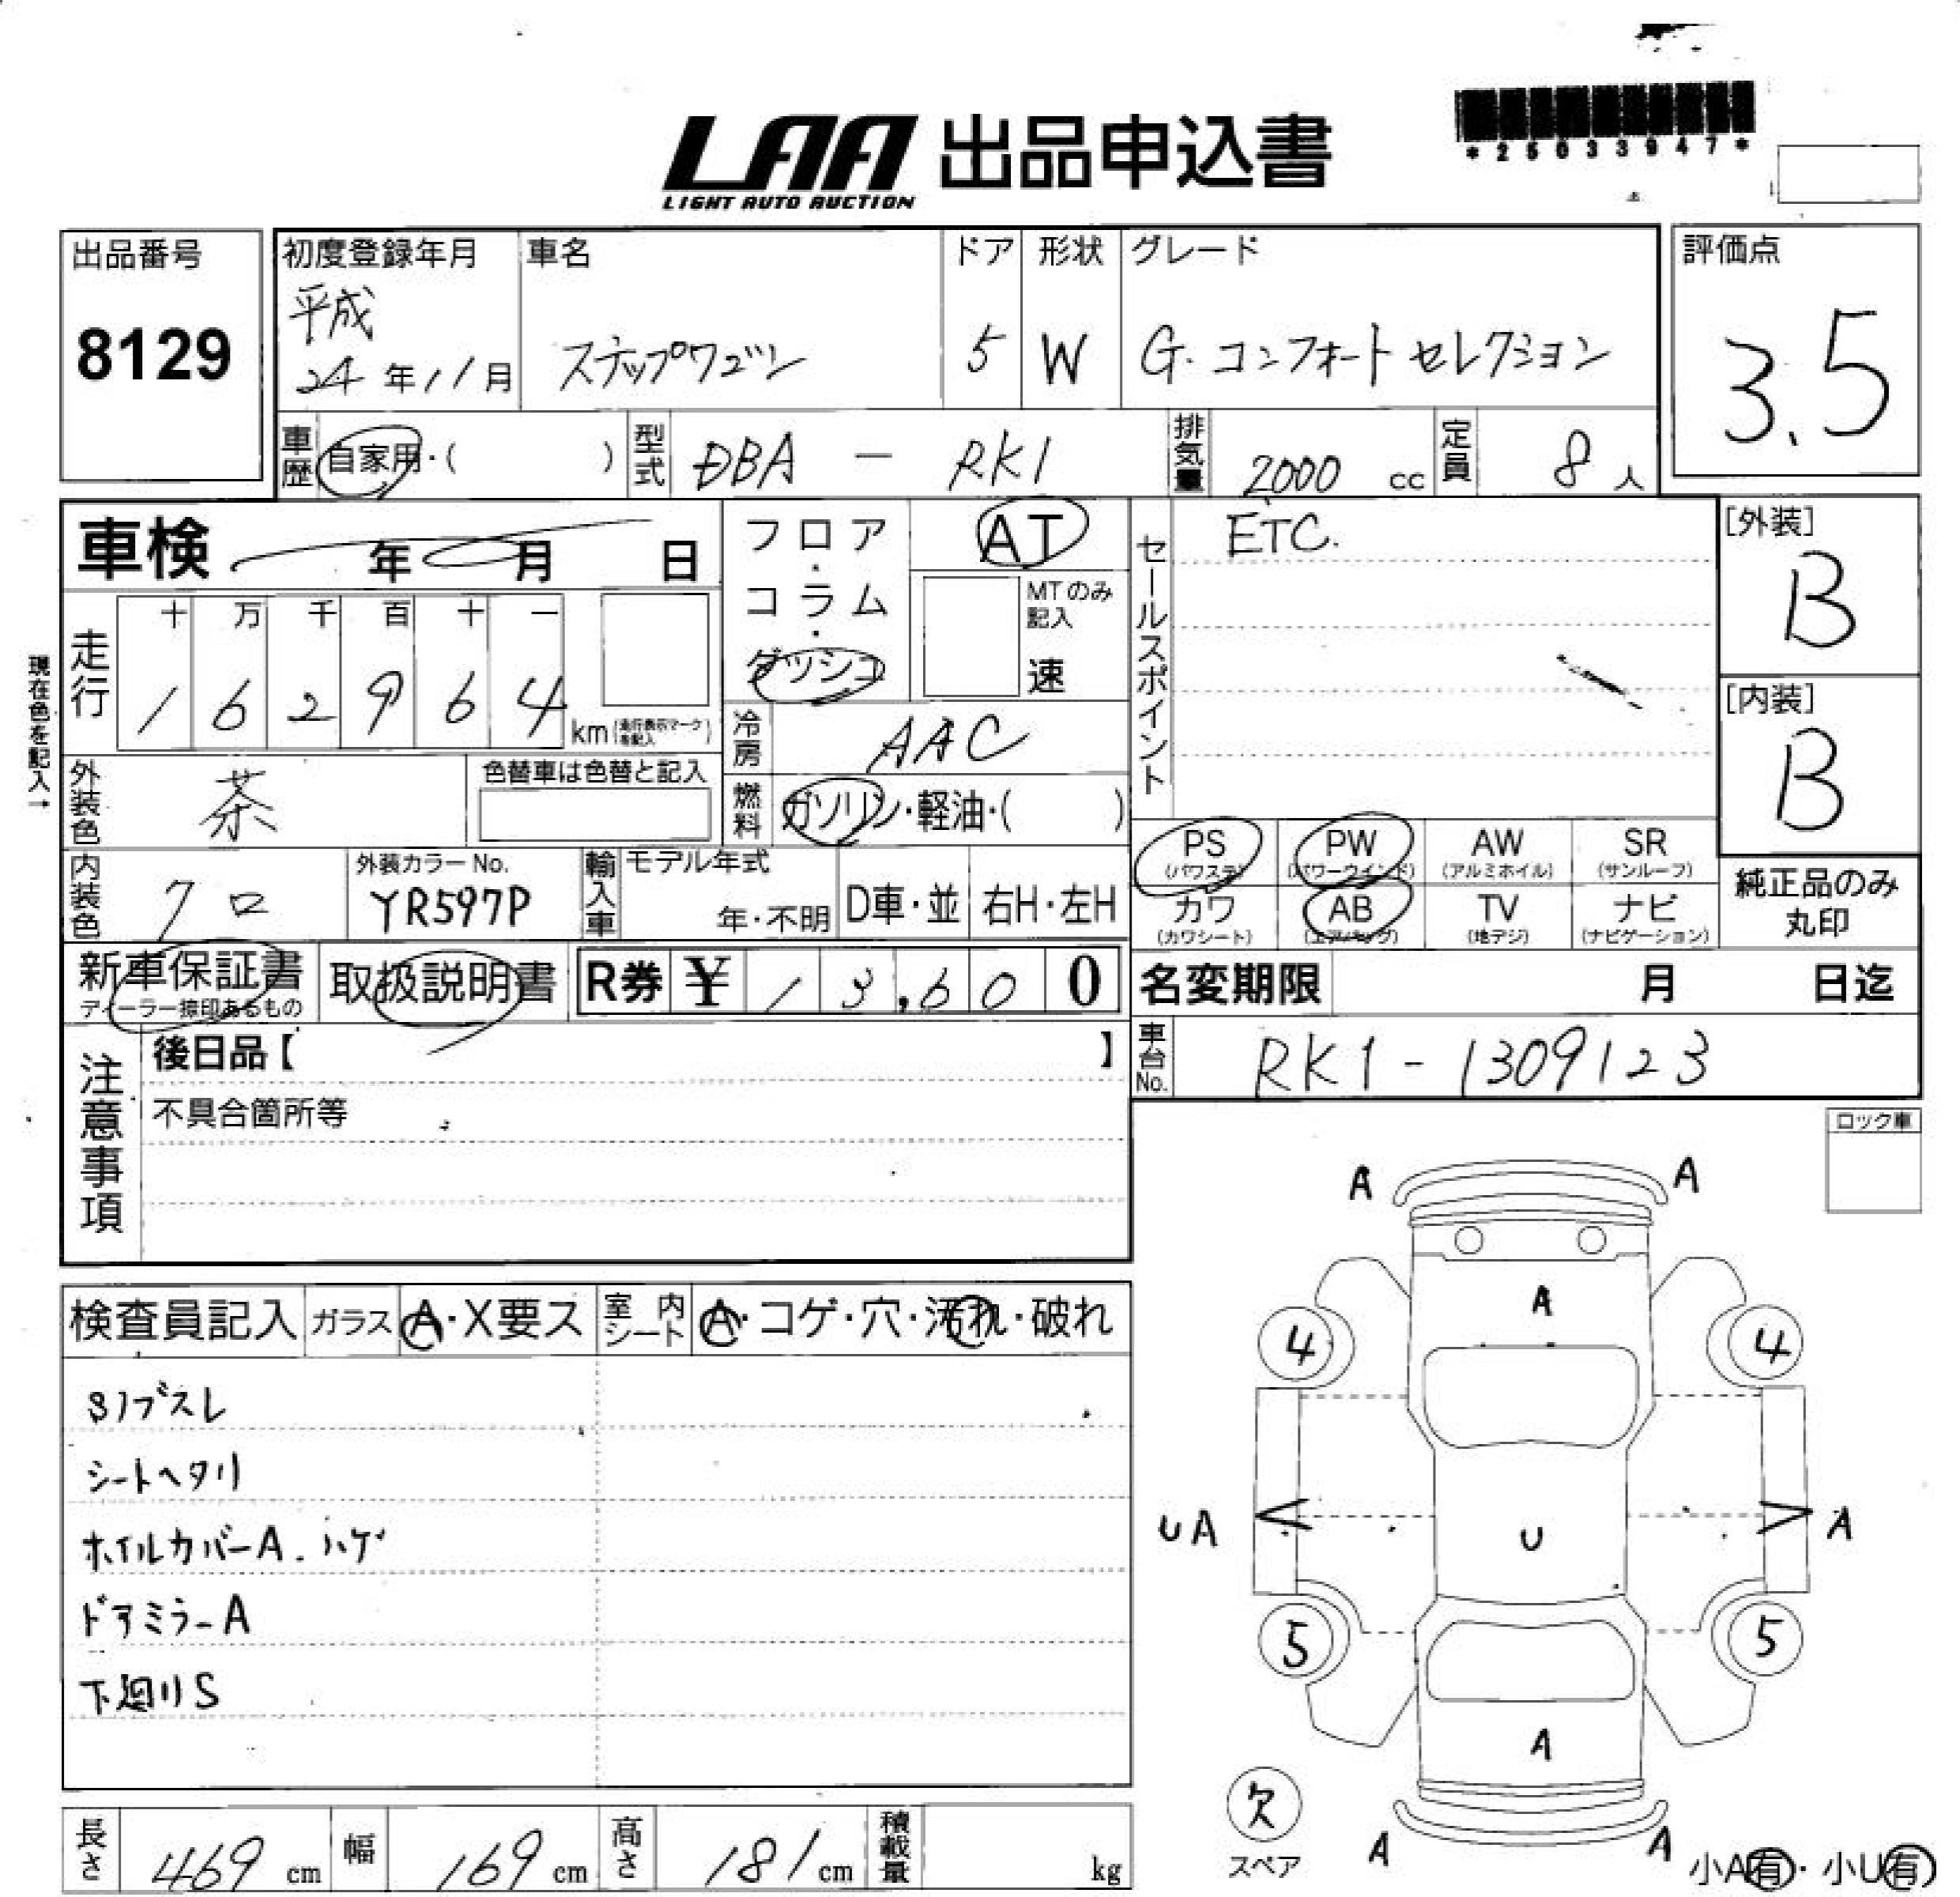 LAA 出品申込書
LIGHT AUTO AUCTION
*25033947*
出品番号
8129
初度登録年月
平成
24年11月
車名
ステップワゴン
ドア
5
形状
W
グレード
G.コンフォートセレクション
評価点
3.5
車歴 自家用・( )
型式 DBA - RK1
排気量 2000 cc
定員 8人
車検 年 月 日
フロア・コラム・ダッシュ
AT
MTのみ記入
速
セールスポイント
ETC.
[外装]
B
[内装]
B
現在色を記入→
走行
十 万 千 百 十 一
1 6 2 9 6 4 km(走行表示マークを記入)
冷房 AAC
外装色 茶
色替車は色替と記入
燃料 ガソリン・軽油・( )
PS (パワステ)
PW (パワーウインド)
AW (アルミホイル)
SR (サンルーフ)
カワ (カワシート)
AB (エアバッグ)
TV (地デジ)
ナビ (ナビゲーション)
純正品のみ
丸印
内装色 クロ
外装カラーNo.
YR597P
輸入車
モデル年式
年・不明
D車・並
右H・左H
新車保証書
ディーラー捺印あるもの
取扱説明書
R券 ¥ 13,600
名変期限 月 日迄
注意事項
後日品【 】
不具合箇所等
車台No. RK1-1309123
ロック車
検査員記入
ガラス A・X要ス
室内シート A・コゲ・穴・汚れ・破れ
シートヘタリ
ホイルカバーA.ハゲ
ドアミラーA
下廻りS
A A
A
4 4
UA U A
5 5
A
欠
スペア
A A
小A有・小U有
長さ 469 cm
幅 169 cm
高さ 181 cm
積載量 kg